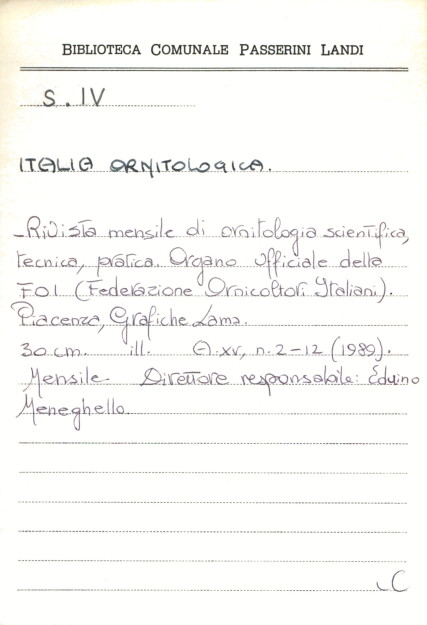 BIBLIOTECA COMUNALE PASSERINI LANDI
S. IV
ITALIA ORNITOLOGICA.
-Rivista mensile di ornitologia scientifica,
tecnica, pratica. Organo Ufficiale della
FOI (Federazione Ornicoltori Italiani).
Piacenza, Grafiche Lama.
30 cm. ill. A. XV, n. 2-12 (1989).
Mensile. Direttore responsabile: Eduino
Meneghello.